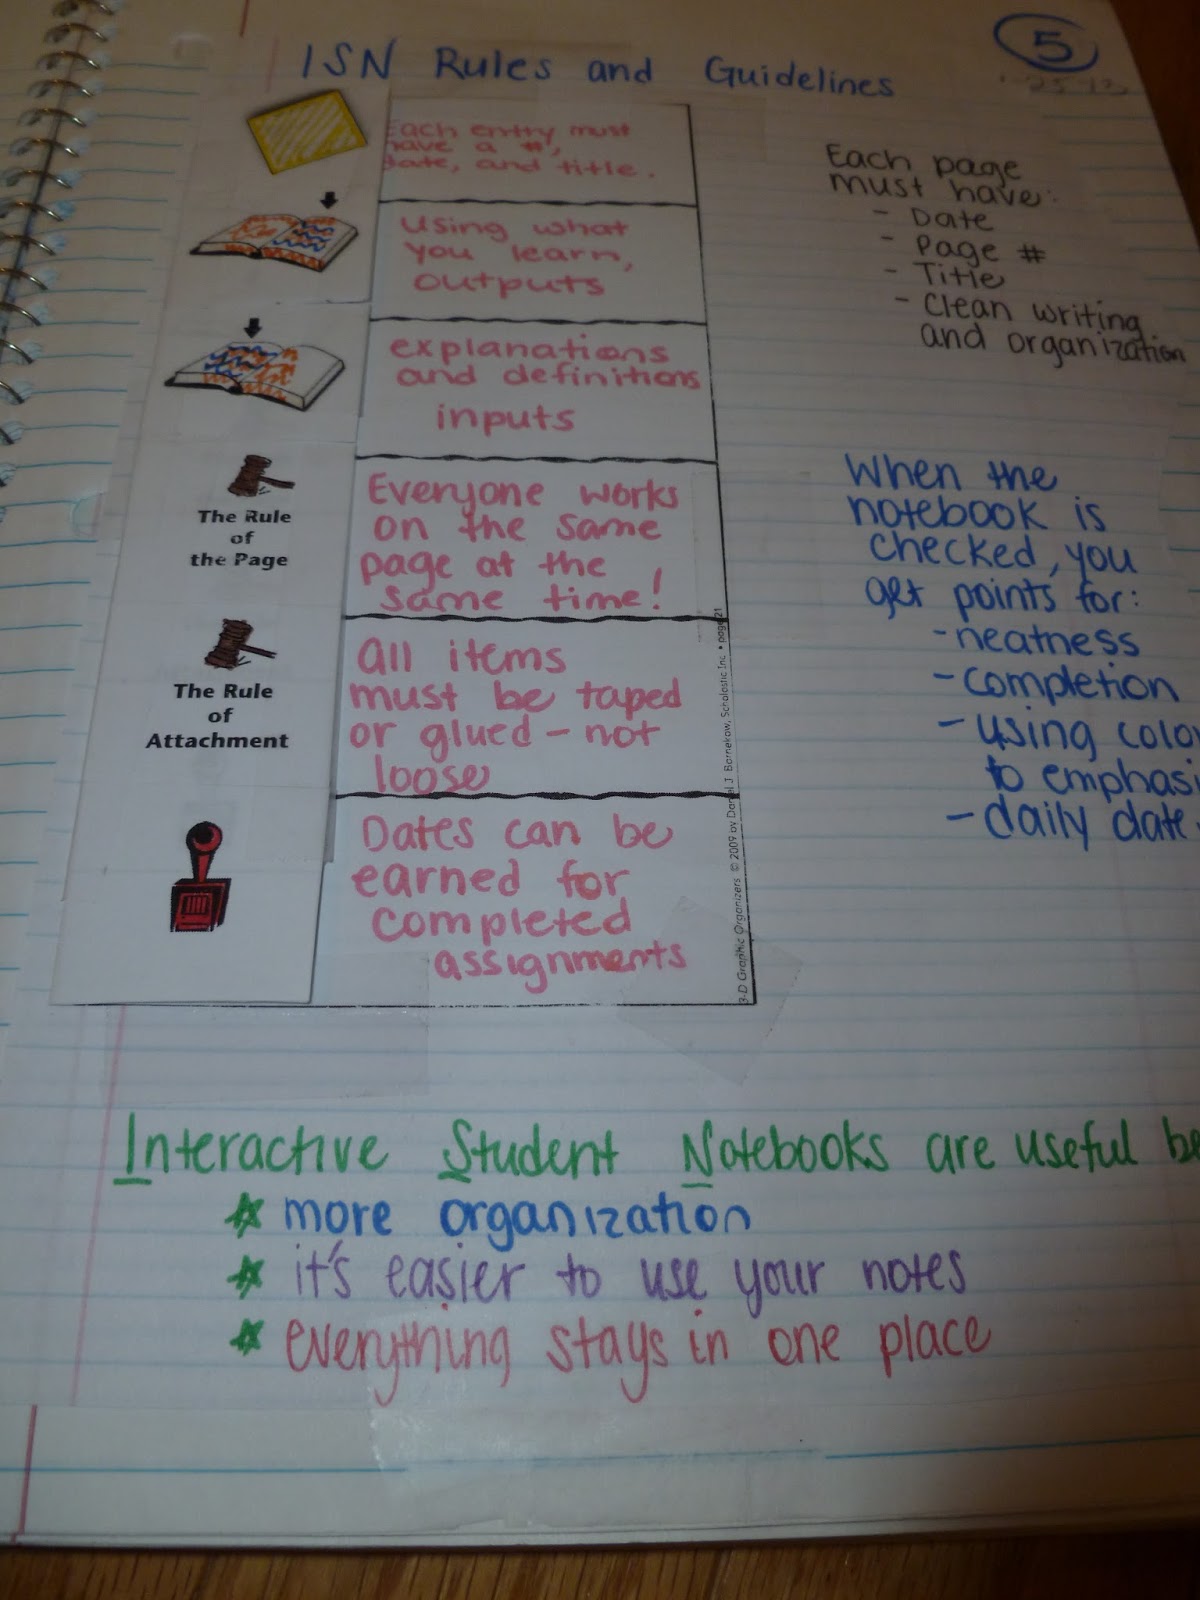 5
ISN Rules and Guidelines
Each entry must
have a #,
date, and title.
Using what
you learn,
outputs
explanations
and definitions
inputs
The Rule
of
the Page
Everyone works
on the same
page at the
same time!
The Rule
of
Attachment
All items
must be taped
or glued - not
loose
Dates can be
earned for
completed
assignments
3-D Graphic Organizers © 2009 by Daniel J. Barnekow, Scholastic Inc. • page 21
Each page
must have:
- Date
- Page #
- Title
- Clean writing
and organization
When the
notebook is
checked, you
get points for:
- neatness
- completion
- using colo
to emphasi
- daily date
Interactive Student Notebooks are useful be
more organization
it's easier to use your notes
everything stays in one place